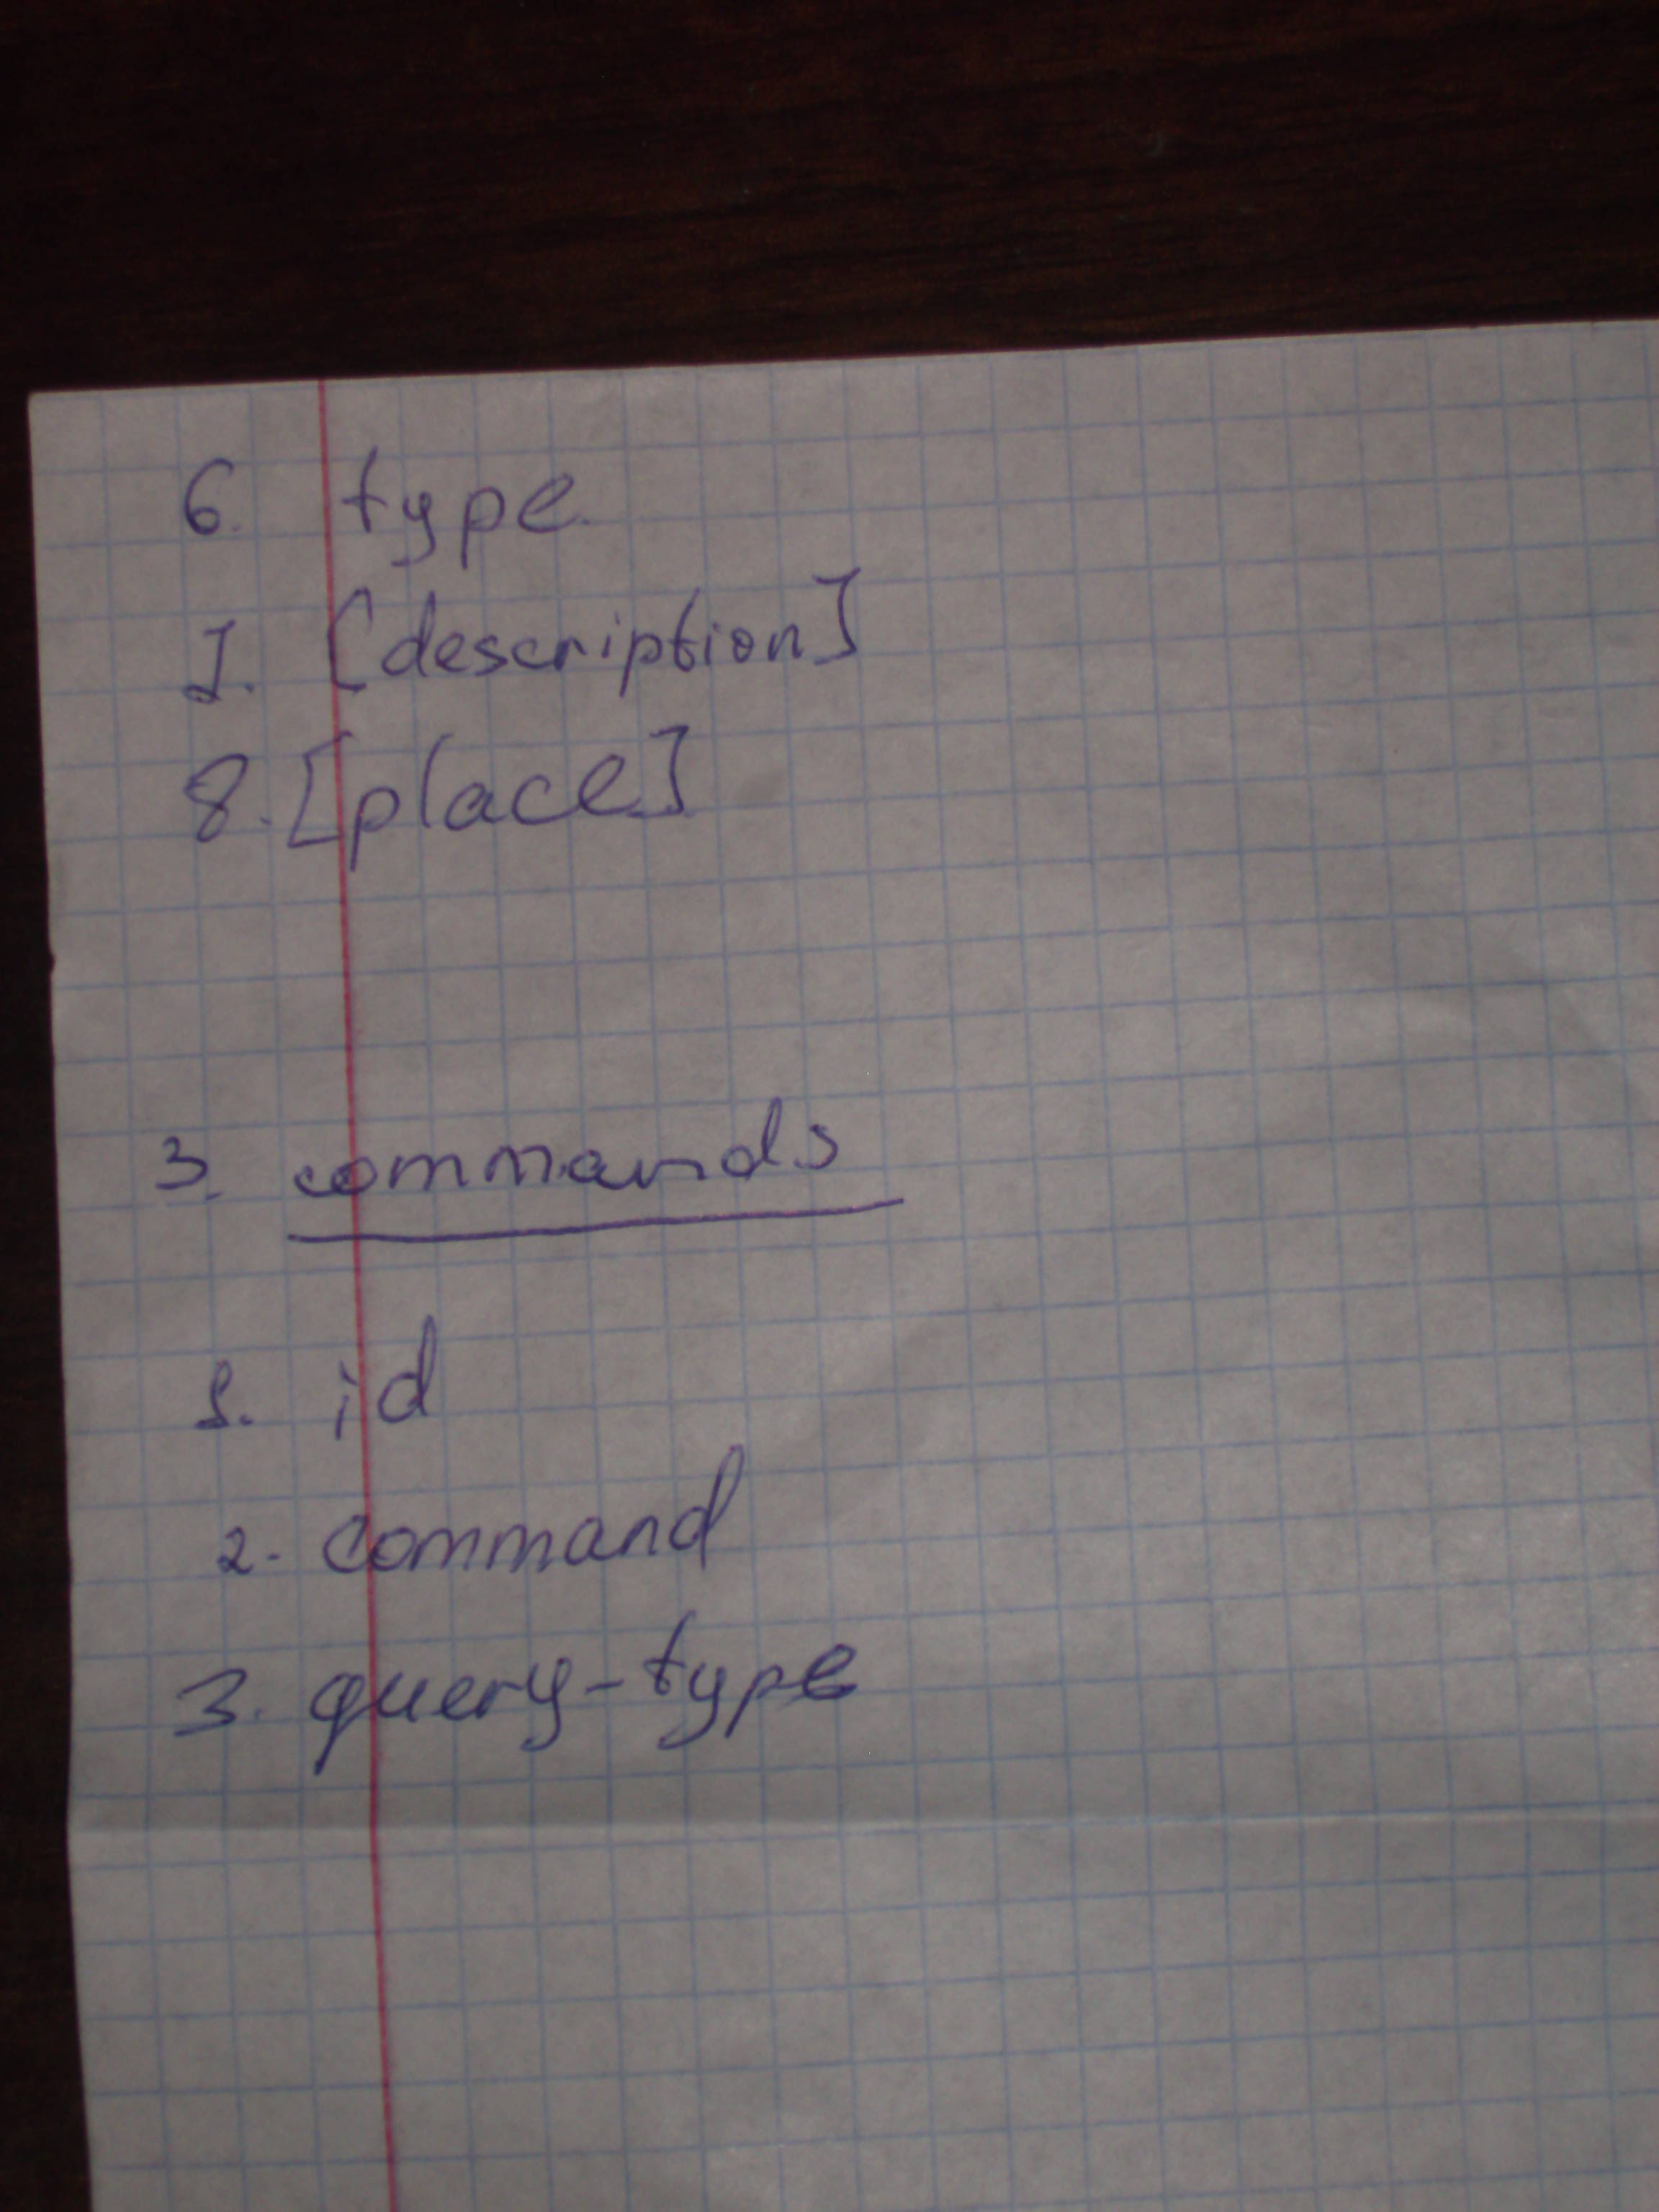 6. type
7. [description]
8. [place]
3. commands
1. id
2. command
3. query-type